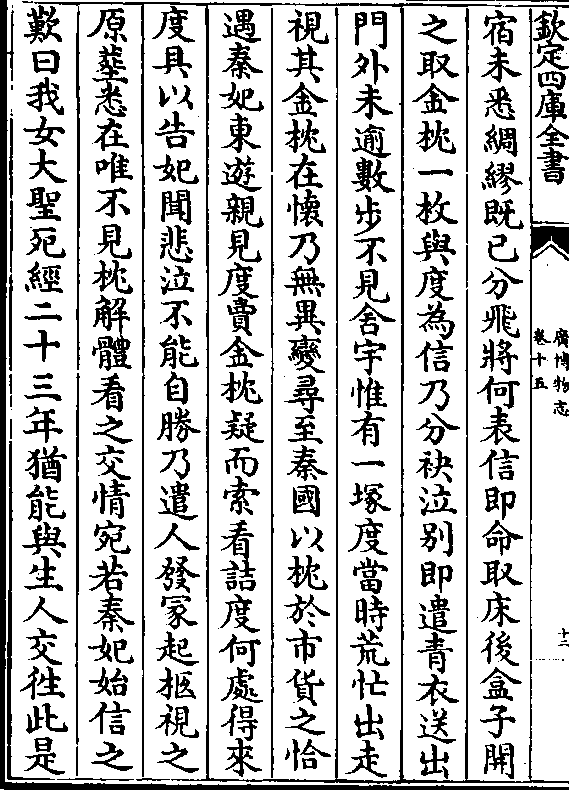 欽定四庫全書
廣博物志
卷十五
十二
宿未悉綢繆既已分飛將何表信即命取床後盒子開
之取金枕一枚與度為信乃分袂泣別即遣青衣送出
門外未逾數步不見舍宇惟有一塚度當時荒忙出走
視其金枕在懷乃無異變尋至秦國以枕於市貨之恰
遇秦妃東遊親見度賣金枕疑而索看詰度何處得來
度具以告妃聞悲泣不能自勝乃遣人發冢起柩視之
原塟悉在唯不見枕解體看之交情宛若秦妃始信之
歎曰我女大聖死經二十三年猶能與生人交徃此是